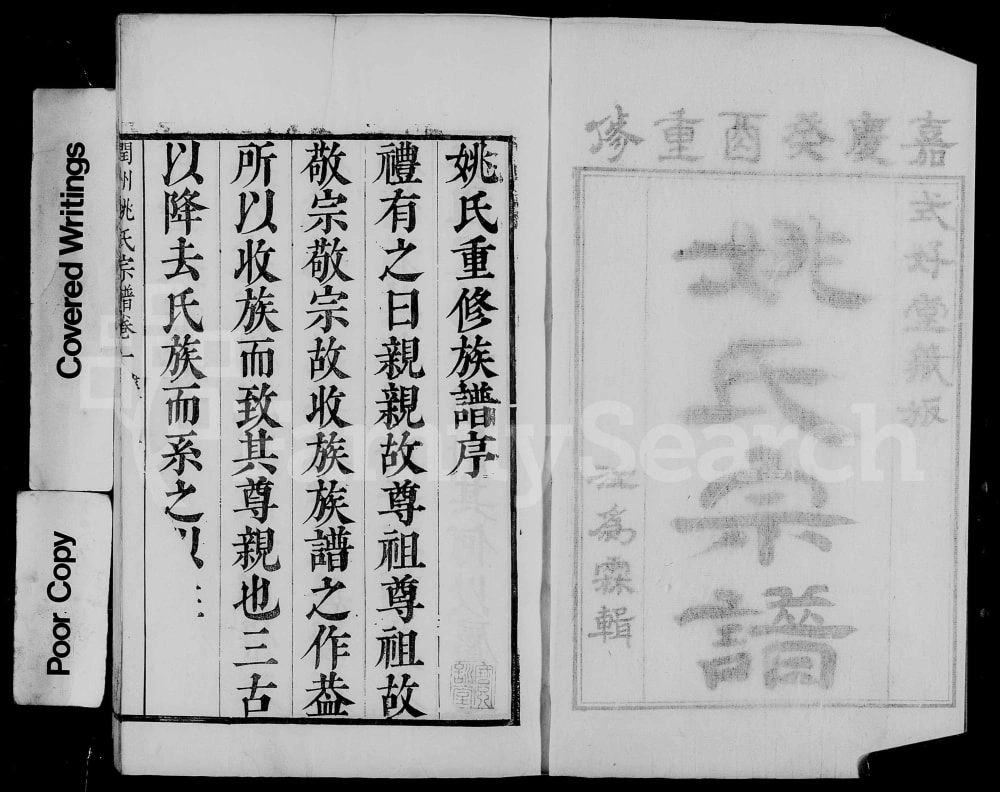 嘉慶癸酉重修
姚氏宗譜
為霖輯
姚氏重修族譜序
禮有之曰親親故尊祖尊祖故
敬宗敬宗故收族族譜之作葢
所以收族而致其尊親也三古
以降去氏族而系之以
潤州姚氏宗譜卷一
Covered Writings
Poor Copy
FamilySearch